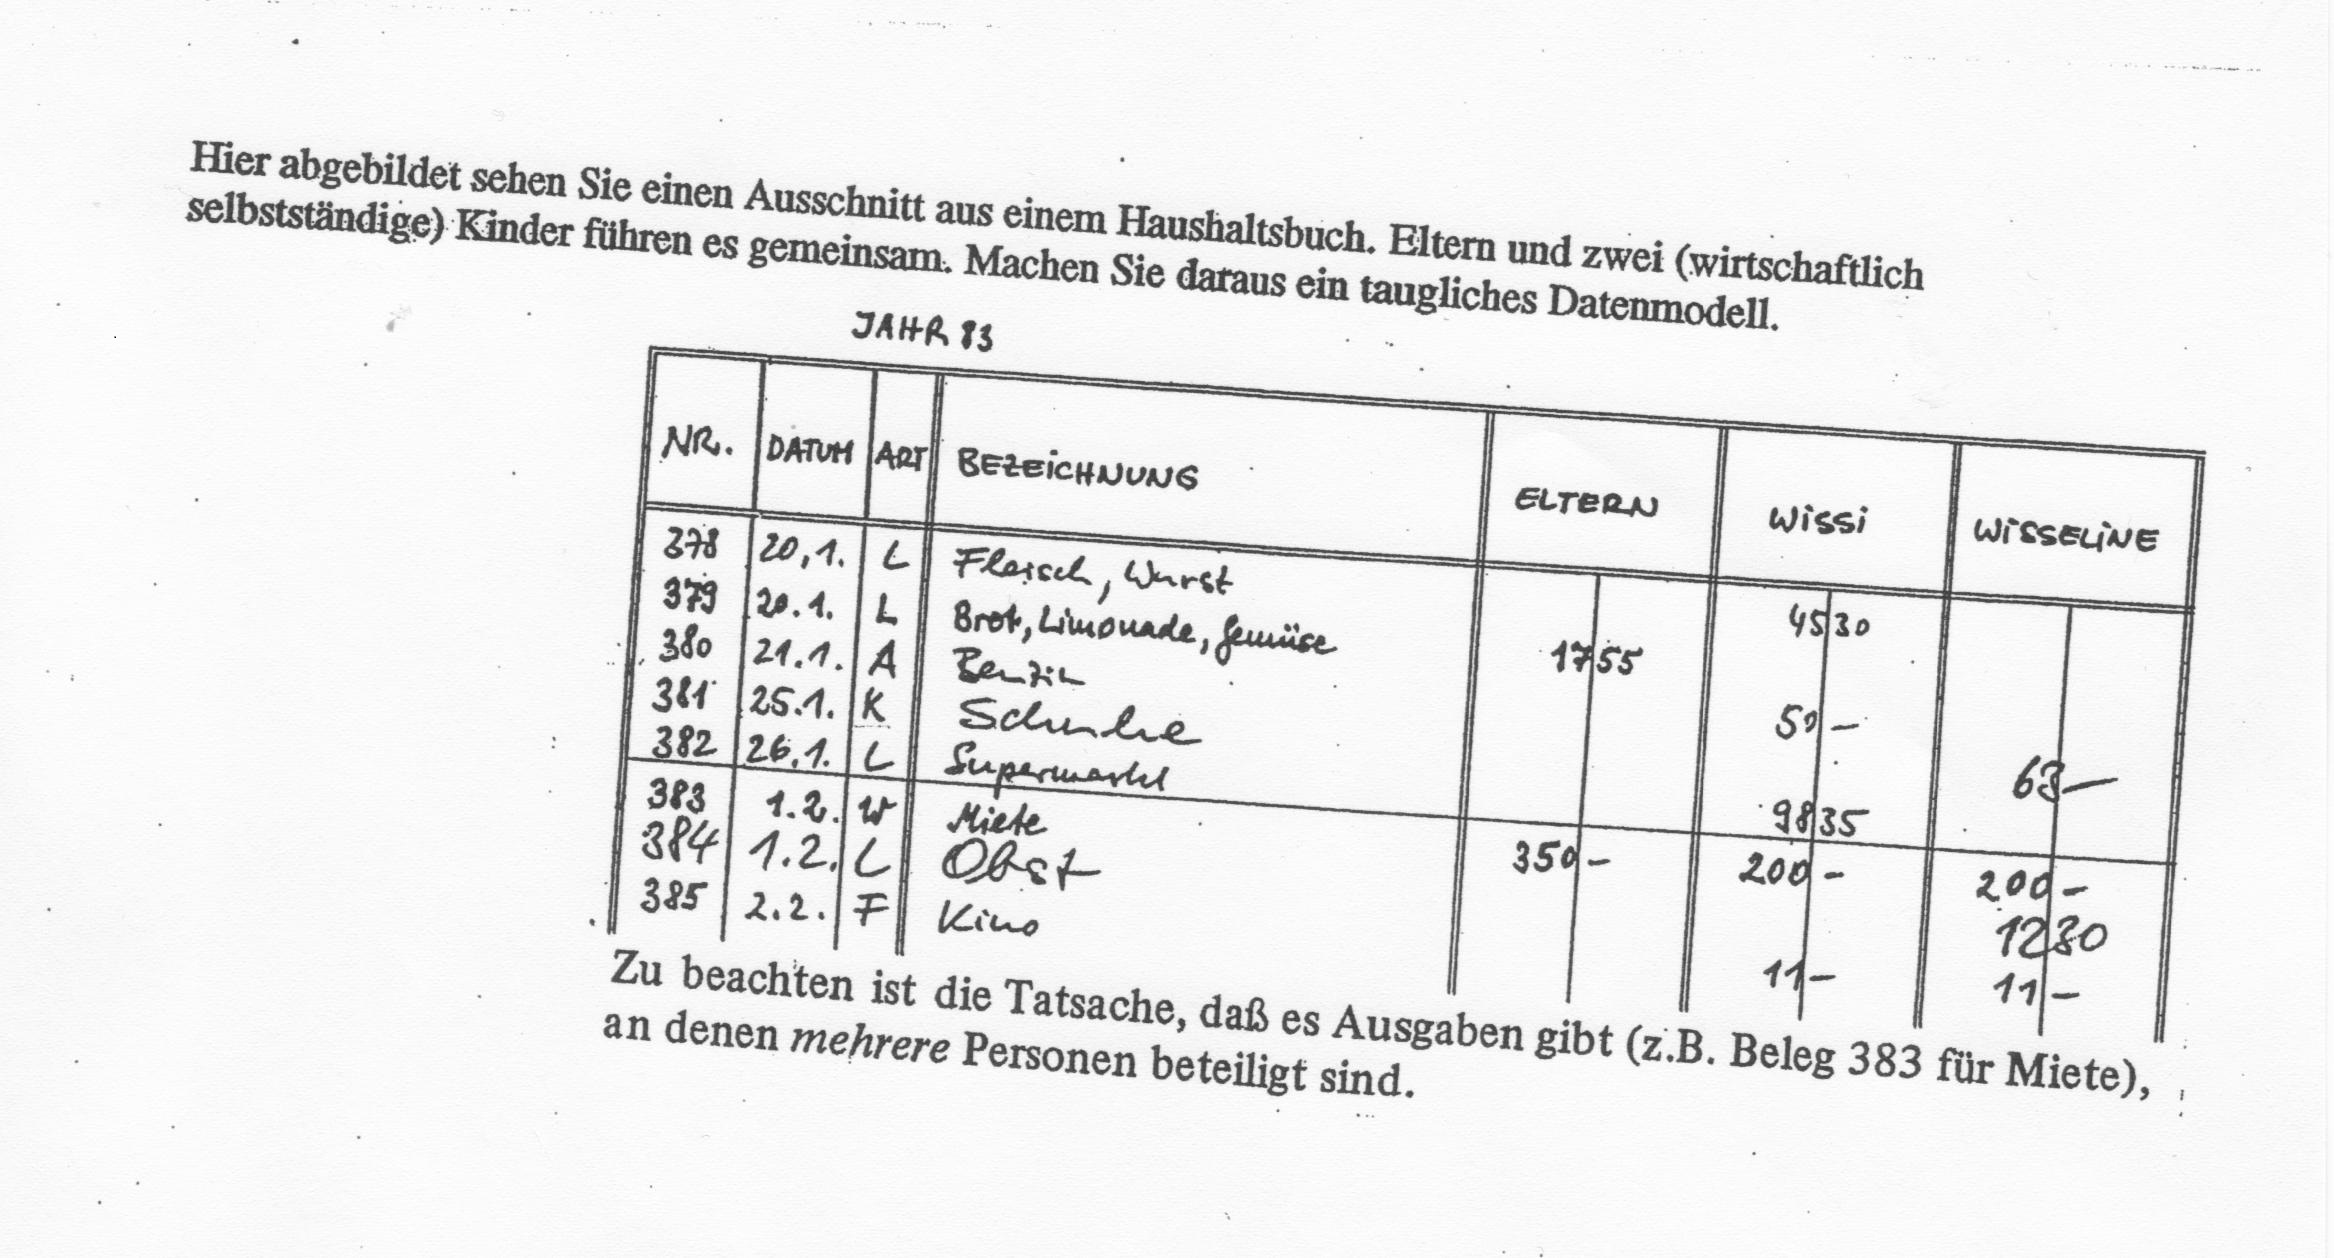 Hier abgebildet sehen Sie einen Ausschnitt aus einem Haushaltsbuch. Eltern und zwei (wirtschaftlich
selbstständige) Kinder führen es gemeinsam. Machen Sie daraus ein taugliches Datenmodell.
JAHR 83
NR. DATUM ART BEZEICHNUNG ELTERN WISSI WISSELINE
378 20,1. L Fleisch, Wurst 45 30
379 20.1. L Brot, Limonade, Gemüse 17 55
380 21.1. A Benzin 50 –
381 25.1. K Schuhe 63 –
382 26.1. L Supermarkt 98 35
383 1.2. W Miete 350 – 200 – 200 –
384 1.2. L Obst 12 30
385 2.2. F Kino 11 – 11 –
Zu beachten ist die Tatsache, daß es Ausgaben gibt (z.B. Beleg 383 für Miete),
an denen mehrere Personen beteiligt sind.